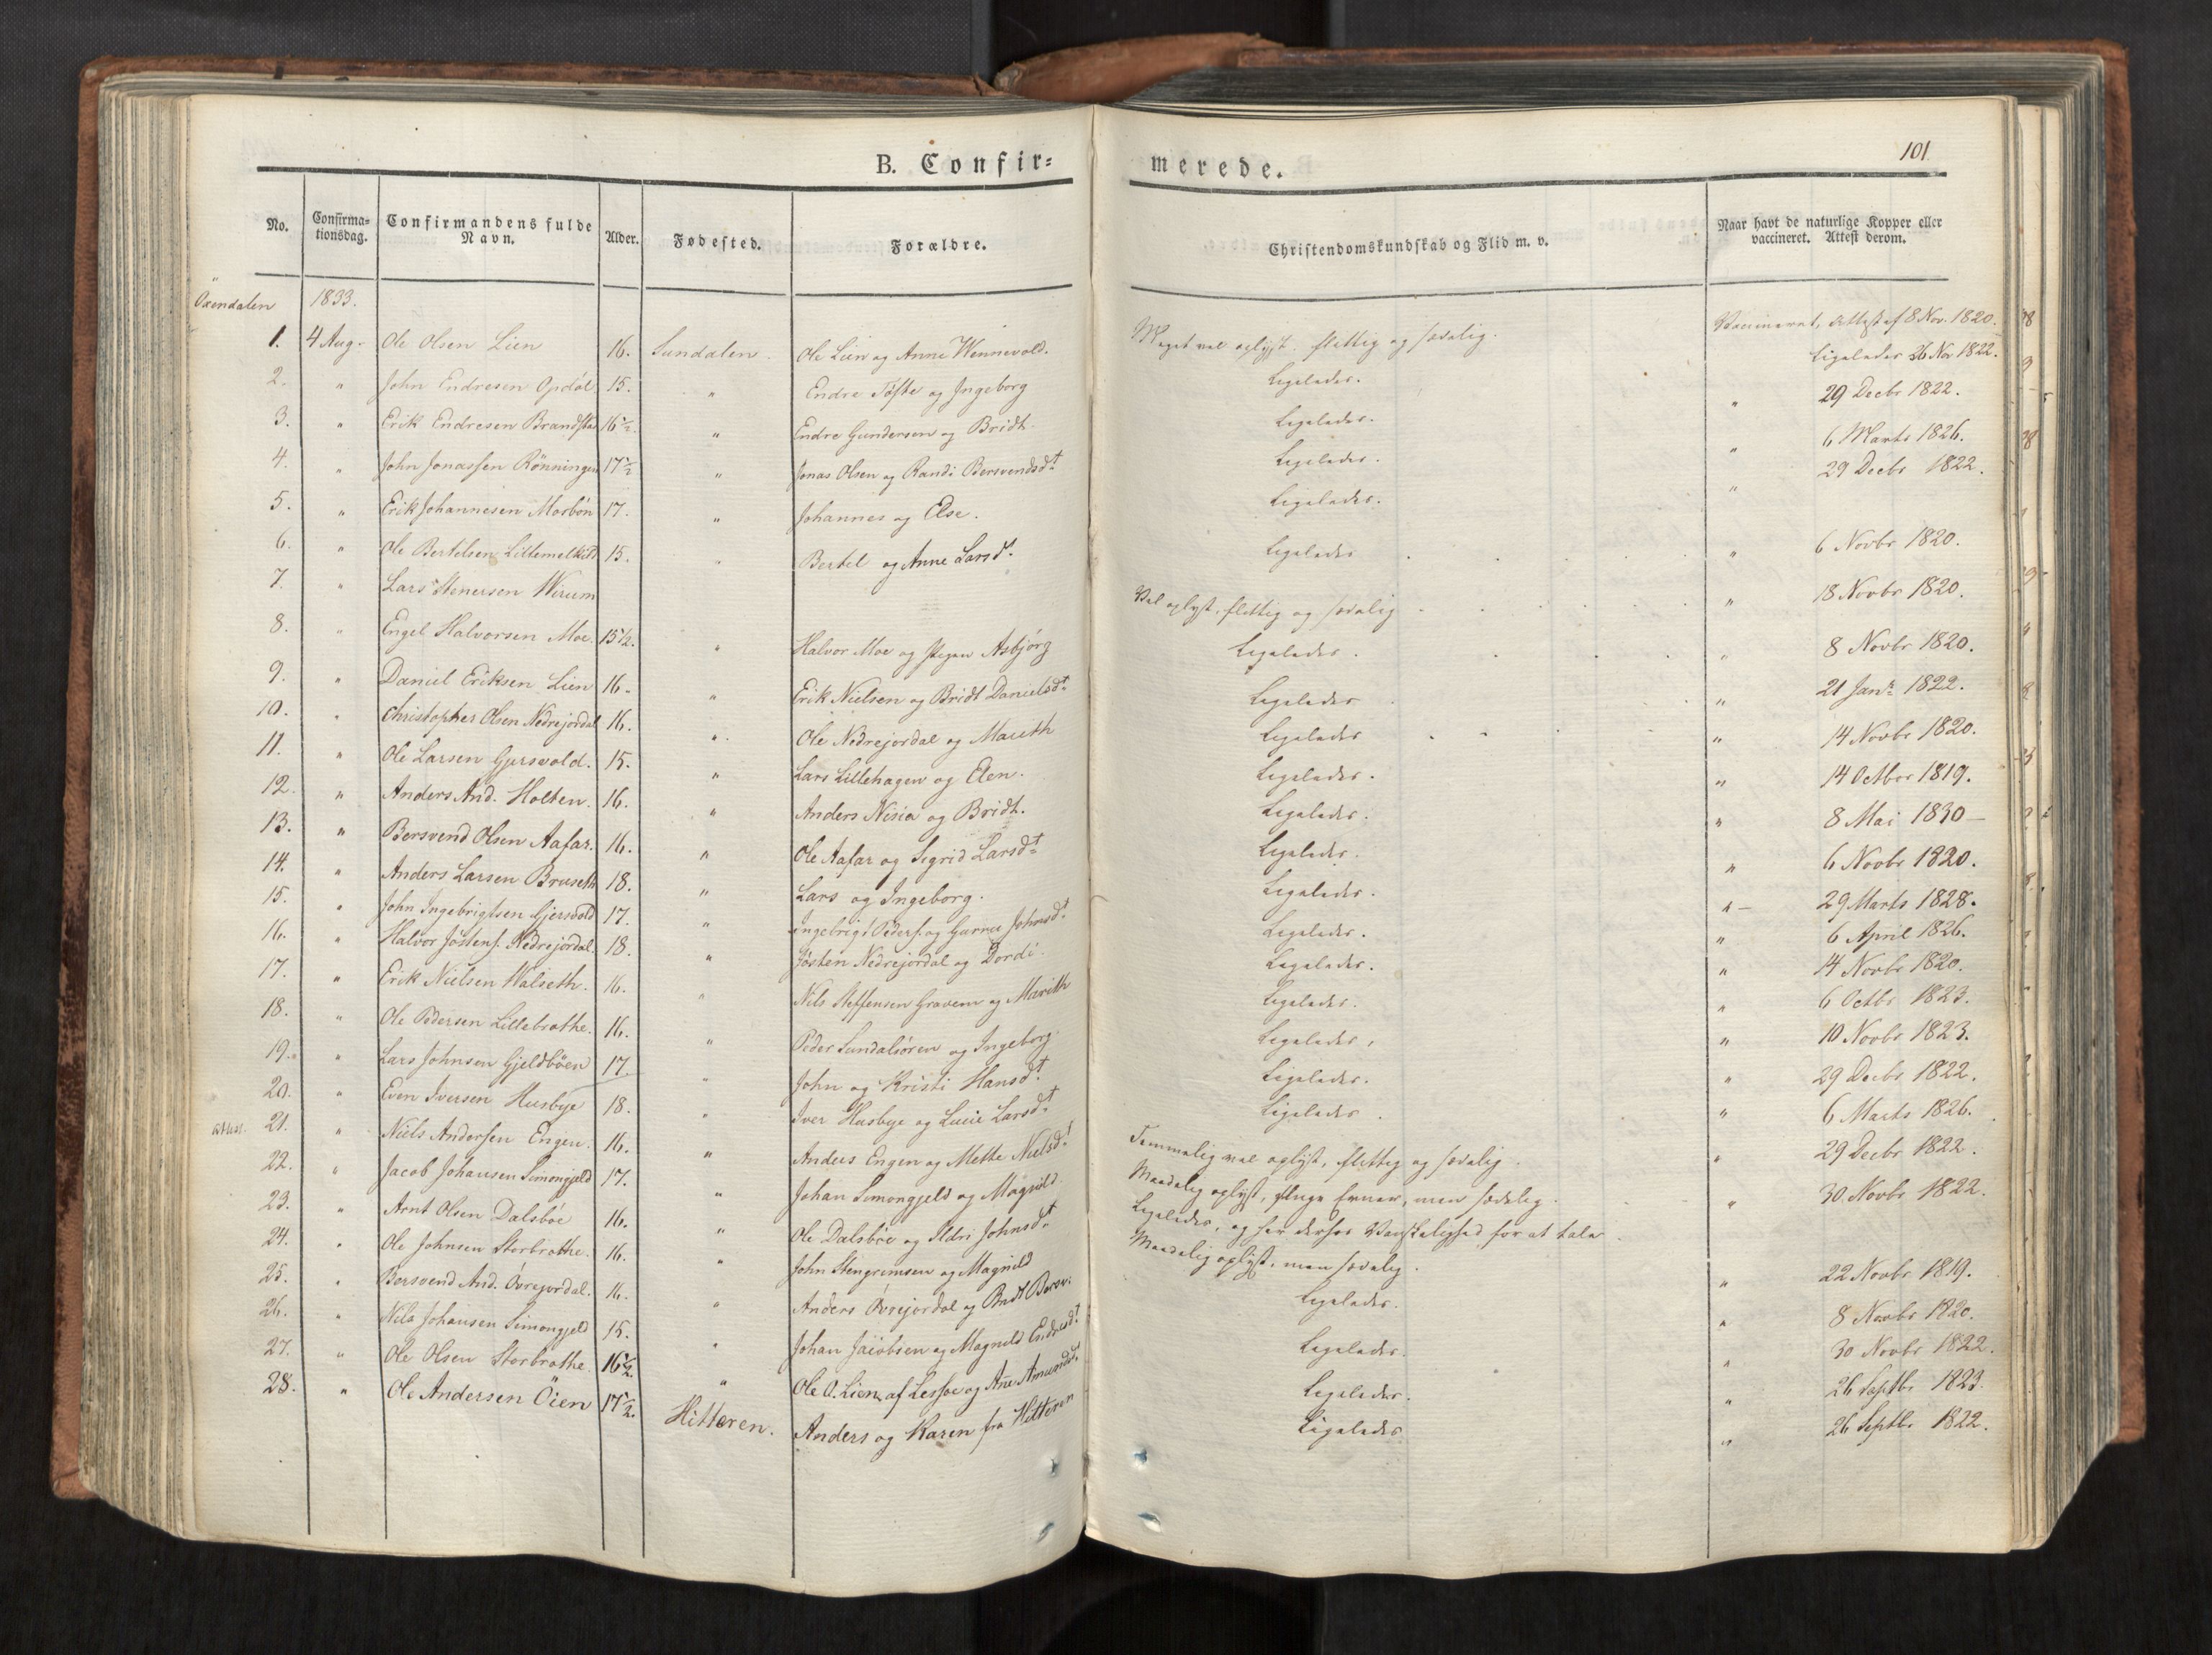 B. Confir=
merede.
101
No. Confirma=tionsdag. Confirmandens fulde Navn. Alder. Fødested. Forældre. Christendomskundskab og Flid m. v. Naar havt de naturlige Kopper eller vaccineret. Attest derom.
Öxendalen 1833.
1. 4 Aug. Ole Olsen Lien 16. Sundalen. Ole Lien og Anne Wennevold. Meget vel oplyst, flittig og sædelig. Vaccineret, Attest af 8 Nov. 1820.
2. " John Endresen Opdøl 15. " Endre Tofte og Ingeborg Ligeledes. Ligeledes 26 Nov 1822.
3. " Erik Endresen Brandstad 16 1/2. " Endre Gundersen og Bridt. Ligeledes. " 29 Decbr 1822.
4. " John Jonassen Rønningen 17 1/2 " Jonas Olsen og Randi Bersvendsdt Ligeledes. " 6 Marts 1826.
5. " Erik Johannesen Morbön 17. " Johannes og Else. Ligeledes. " 29 Decbr 1822.
6. " Ole Bertelsen Littemelkild 15. " Bertel og Anne Larsd. Ligeledes " 6 Novbr 1820.
7. " Lars Stenersen Wirum Vel oplyst, flittig og sædelig " 18 Novbr 1820.
8. " Engel Halvorsen Moe. 15 1/2. " Halvor Moe og Pigen Asbjörg Ligeledes. " 8 Novbr 1820.
9. " Daniel Eriksen Lien 16. " Erik Nielsen og Bridt Danielsdt. Ligeledes " 21 Janr 1822.
10. " Christopher Olsen Nedrejordal 16. " Ole Nedrejordal og Mareth Ligeledes " 14 Novbr 1820.
11. " Ole Larsen Gjersvold. 15. " Lars Lillehagen og Elen. Ligeledes. " 14 Octbor 1819.
12. " Anders And. Holten. 16. " Anders Nisia og Bridt. Ligeledes. " 8 Mai 1830 —
13. " Bersvend Olsen Aafar. 16. " Ole Aafar og Sigrid Larsdt Ligeledes. " 6 Novbr 1820.
14. " Anders Larsen Bruseth 18. " Lars og Ingeborg. Ligeledes. " — 29 Marts 1828.
15. " John Ingebrigtsen Gjersvold 17. " Ingebrigt Peders. og Gurru Johnsdt Ligeledes. " 6 April 1826.
16. " Halvor Jöstens. Nedrejordal. 18. " Jösten Nedrejordal og Dordi. Ligeledes. " 14 Novbr 1820.
17. " Erik Nielsen Walseth. 16. " Nils Steffensen Gravem og Marith Ligeledes. " 6 Octbr 1823.
18. " Ole Pedersen Lillebrothe. 16. " Peder Sundalsören og Ingeborg. Ligeledes, " 10 Novbr 1823.
19. " Lars Johnsen Gjeldböen 17. " John og Kristi Hansdt. Ligeledes. " 29 Decbr 1822.
20. " Even Iversen Husbye 18. " Iver Husbye og Lucie Larsdt Ligeledes. " 6 Marts 1826.
21. " Niels Andersen Engen. 16. " Anders Engen og Mette Nielsdt Temmelig vel oplyst, flittig og sædelig. " 29 Decbr 1822.
22. " Jacob Johansen Simongjeld 17. " Johan Simongjeld og Magnild. Maadelig oplyst, ringe Evner, men sædelig. " 30 Novbr 1822.
23. " Arnt Olsen Dalsböe 16. " Ole Dalsböe og Ildri Johnsdt Ligeledes, og har derhos Vanskelighed for at tale.
24. " Ole Johnsen Storbrothe. 16. " John Stengrimsen og Magnild Maadelig oplyst, men sædelig. " 22 Novbr 1819.
25. " Bersvend And. Övrejordal. 16. " Anders Övrejordal og Bridt Bersv: Ligeledes. " 8 Novbr 1820.
26. " Nils Johansen Simongjeld 15. " Johan Jacobsen og Magnild Endresdt Ligeledes. " 30 Novbr 1822.
27. " Ole Olsen Storbrothe. 16 1/2. " Ole O. Lien af Lessoe og Ane Amundsdt. Ligeledes. " 26 Septbr 1823.
28. " Ole Andersen Öien 17 1/2. Hitteren. Anders og Karen fra Hitteren Ligeledes " 26 Septbr 1822.